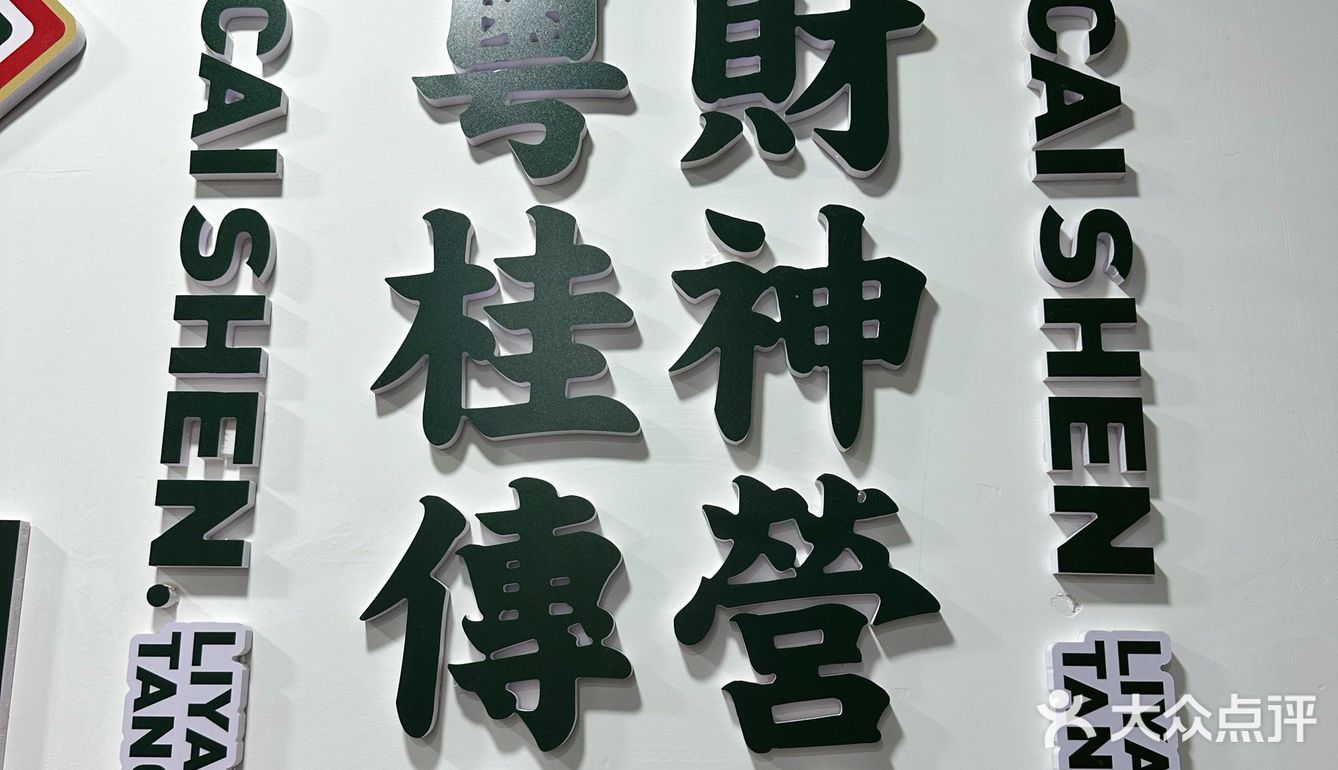 CAI SHEN.
LIYA
TANG
財神營
粵桂傳
CAI SHEN
LIYA
TAN
大众点评